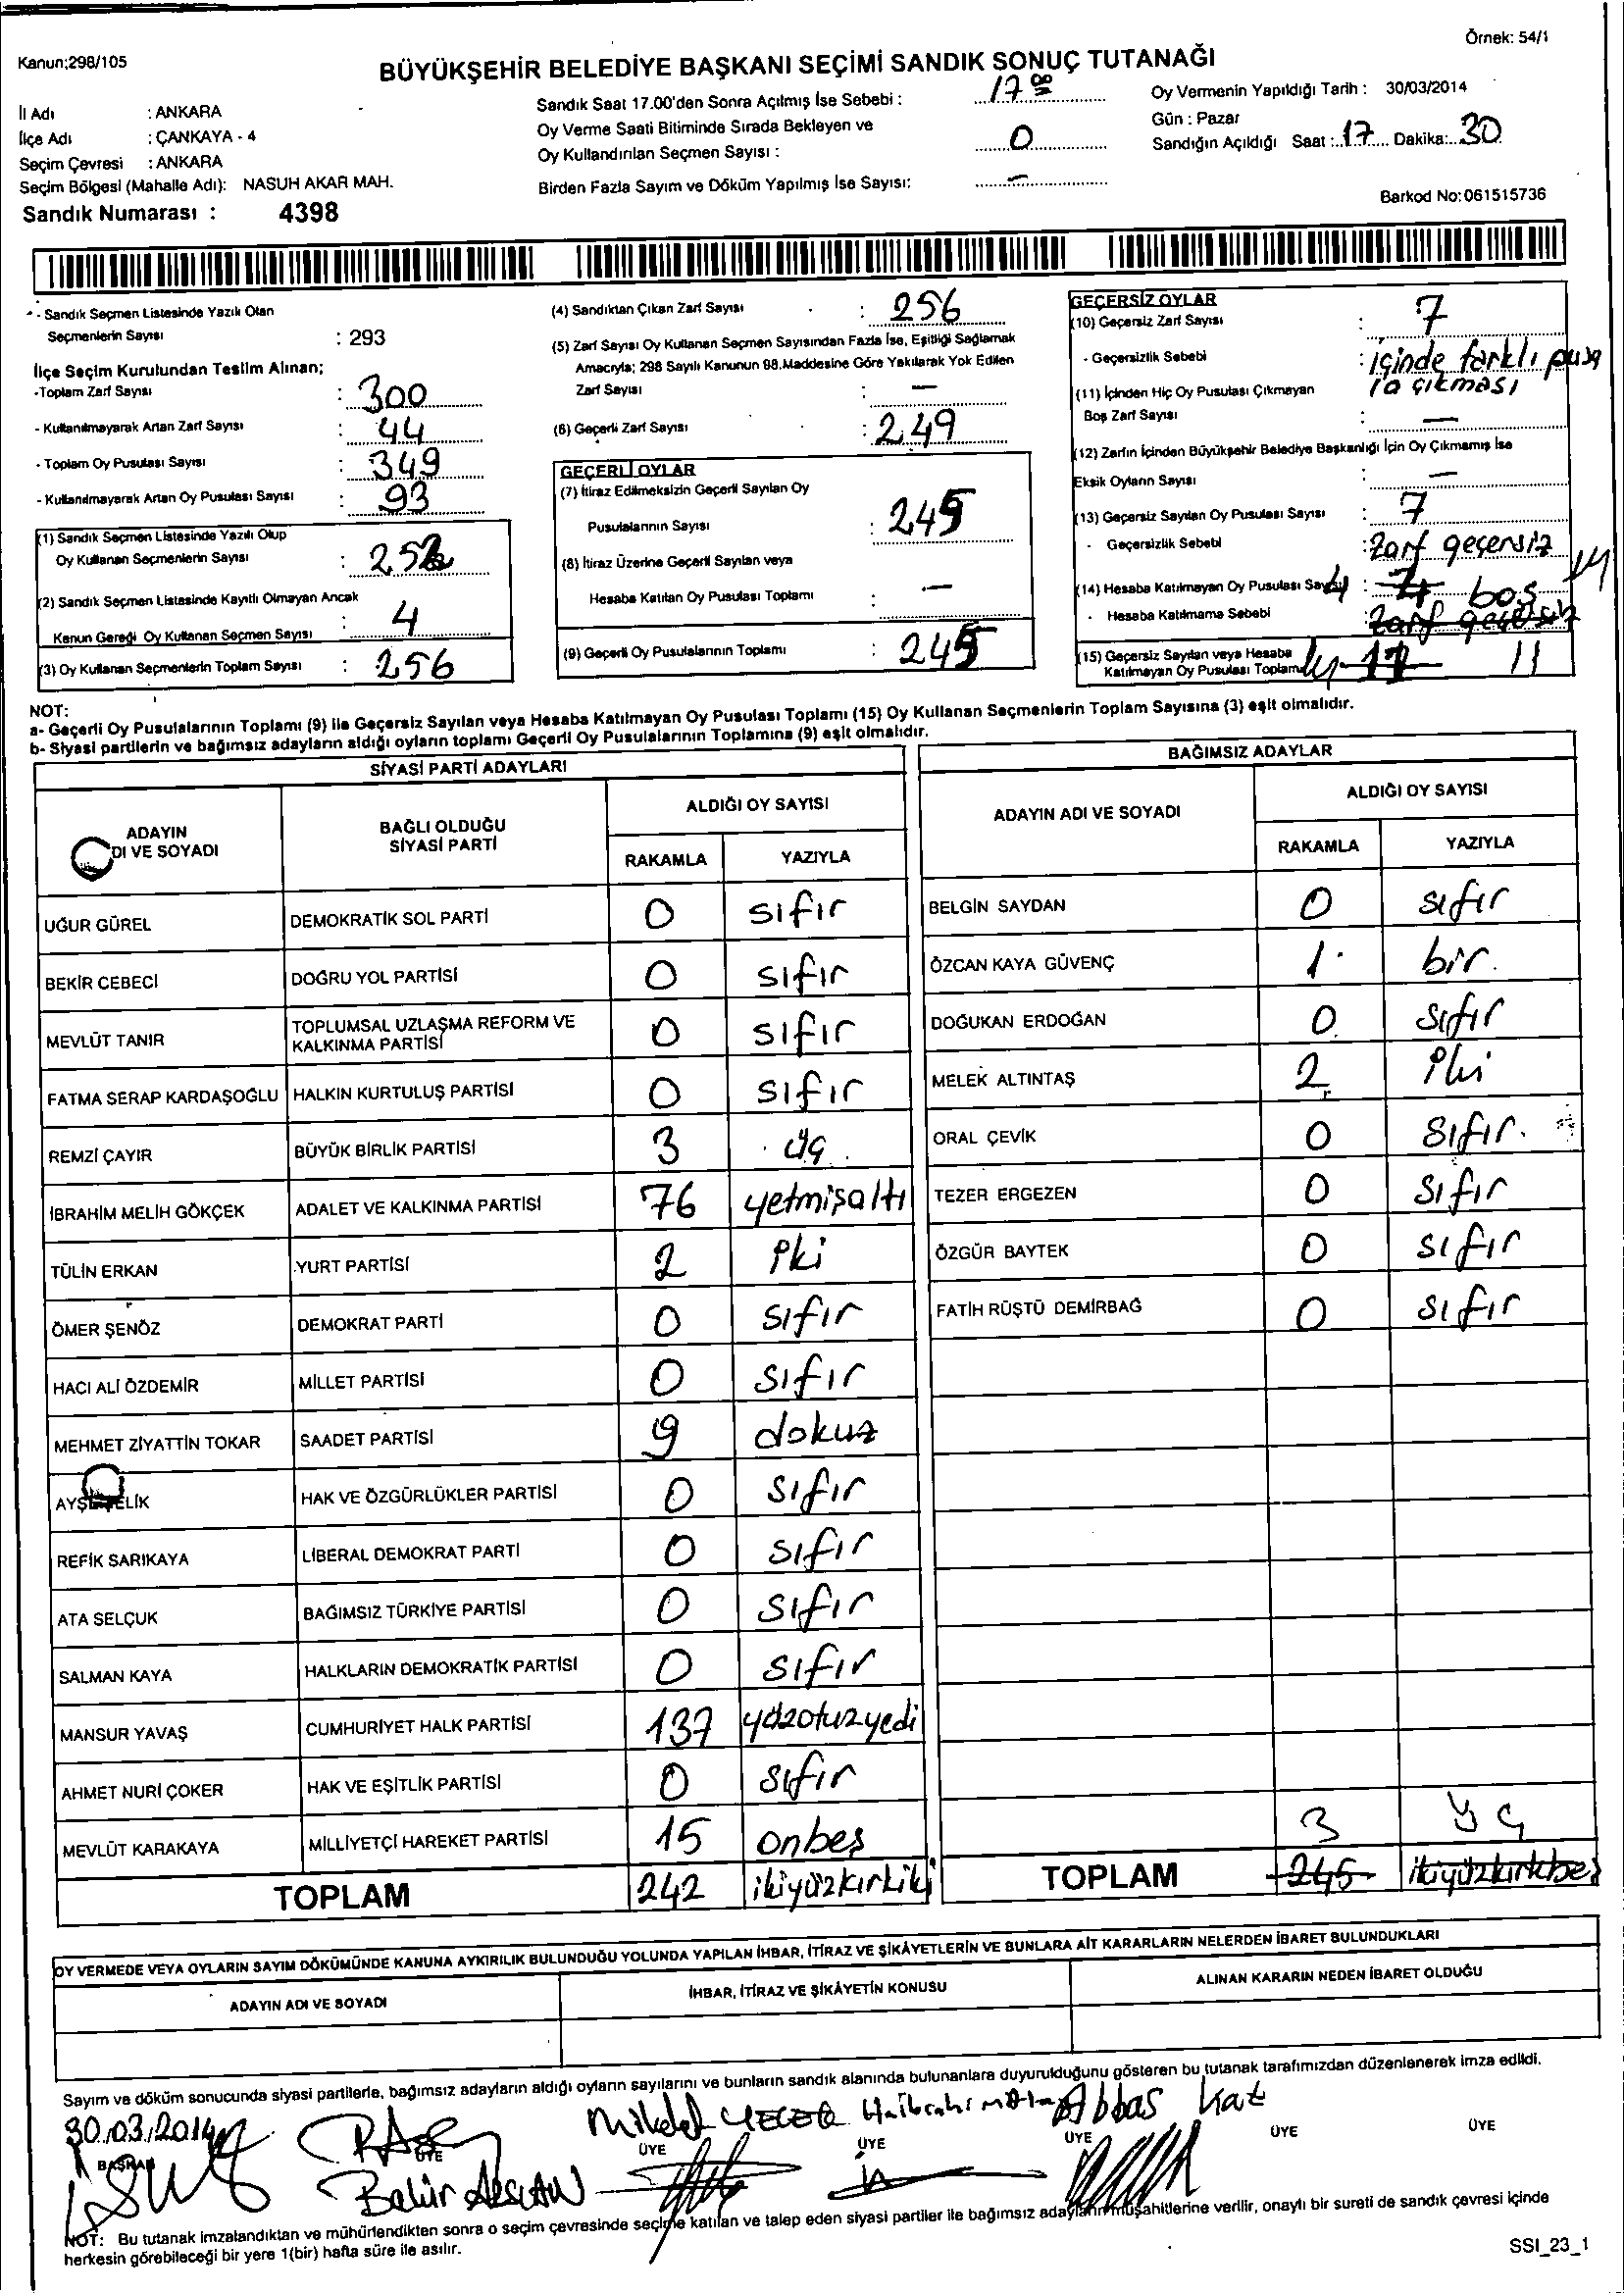 Örnek: 54/1
Kanun;298/105
BÜYÜKŞEHİR BELEDİYE BAŞKANI SEÇİMİ SANDIK SONUÇ TUTANAĞI
İl Adı : ANKARA
İlçe Adı : ÇANKAYA - 4
Seçim Çevresi : ANKARA
Seçim Bölgesi (Mahalle Adı): NASUH AKAR MAH.
Sandık Numarası : 4398
Sandık Saat 17.00'den Sonra Açılmış İse Sebebi : 17 00
Oy Verme Saati Bitiminde Sırada Bekleyen ve
Oy Kullandırılan Seçmen Sayısı : 0
Birden Fazla Sayım ve Döküm Yapılmış İse Sayısı: -
Oy Vermenin Yapıldığı Tarih : 30/03/2014
Gün : Pazar
Sandığın Açıldığı Saat : 17 Dakika: 30
Barkod No:061515736
- Sandık Seçmen Listesinde Yazılı Olan
Seçmenlerin Sayısı : 293
İlçe Seçim Kurulundan Teslim Alınan;
-Toplam Zarf Sayısı : 300
- Kullanılmayarak Artan Zarf Sayısı : 44
- Toplam Oy Pusulası Sayısı : 349
- Kullanılmayarak Artan Oy Pusulası Sayısı : 93
(1) Sandık Seçmen Listesinde Yazılı Olup
Oy Kullanan Seçmenlerin Sayısı : 252
(2) Sandık Seçmen Listesinde Kayıtlı Olmayan Ancak
Kanun Gereği Oy Kullanan Seçmen Sayısı : 4
(3) Oy Kullanan Seçmenlerin Toplam Sayısı : 256
(4) Sandıktan Çıkan Zarf Sayısı : 256
(5) Zarf Sayısı Oy Kullanan Seçmen Sayısından Fazla İse, Eşitliği Sağlamak
Amacıyla; 298 Sayılı Kanunun 98.Maddesine Göre Yakılarak Yok Edilen
Zarf Sayısı : -
(6) Geçerli Zarf Sayısı : 249
GEÇERLİ OYLAR
(7) İtiraz Edilmeksizin Geçerli Sayılan Oy
Pusulalarının Sayısı : 245
(8) İtiraz Üzerine Geçerli Sayılan veya
Hesaba Katılan Oy Pusulası Toplamı : -
(9) Geçerli Oy Pusulalarının Toplamı : 245
GEÇERSİZ OYLAR
(10) Geçersiz Zarf Sayısı : 7
- Geçersizlik Sebebi : içinde farklı pusu
la çıkması
(11) İçinden Hiç Oy Pusulası Çıkmayan
Boş Zarf Sayısı : -
(12) Zarfın İçinden Büyükşehir Belediye Başkanlığı İçin Oy Çıkmamış İse
Eksik Oyların Sayısı : -
(13) Geçersiz Sayılan Oy Pusulası Sayısı : 7
- Geçersizlik Sebebi : Zarf geçersiz
(14) Hesaba Katılmayan Oy Pusulası Sayısı : 4 boş
- Hesaba Katılmama Sebebi Zarf geçersiz
(15) Geçersiz Sayılan veya Hesaba
Katılmayan Oy Pusulası Toplamı 11
NOT:
a- Geçerli Oy Pusulalarının Toplamı (9) ile Geçersiz Sayılan veya Hesaba Katılmayan Oy Pusulası Toplamı (15) Oy Kullanan Seçmenlerin Toplam Sayısına (3) eşit olmalıdır.
b- Siyasi partilerin ve bağımsız adayların aldığı oyların toplamı Geçerli Oy Pusulalarının Toplamına (9) eşit olmalıdır.
SİYASİ PARTİ ADAYLARI
ADAYIN
DI VE SOYADI
BAĞLI OLDUĞU
SİYASİ PARTİ
ALDIĞI OY SAYISI
RAKAMLA YAZIYLA
UĞUR GÜREL DEMOKRATİK SOL PARTİ 0 sıfır
BEKİR CEBECİ DOĞRU YOL PARTİSİ 0 sıfır
MEVLÜT TANIR TOPLUMSAL UZLAŞMA REFORM VE
KALKINMA PARTİSİ 0 sıfır
FATMA SERAP KARDAŞOĞLU HALKIN KURTULUŞ PARTİSİ 0 sıfır
REMZİ ÇAYIR BÜYÜK BİRLİK PARTİSİ 3 üç
İBRAHİM MELİH GÖKÇEK ADALET VE KALKINMA PARTİSİ 76 yetmişaltı
TÜLİN ERKAN YURT PARTİSİ 2 iki
ÖMER ŞENÖZ DEMOKRAT PARTİ 0 sıfır
HACI ALİ ÖZDEMİR MİLLET PARTİSİ 0 sıfır
MEHMET ZİYATTİN TOKAR SAADET PARTİSİ 9 dokuz
AYŞE ÇELİK HAK VE ÖZGÜRLÜKLER PARTİSİ 0 sıfır
REFİK SARIKAYA LİBERAL DEMOKRAT PARTİ 0 sıfır
ATA SELÇUK BAĞIMSIZ TÜRKİYE PARTİSİ 0 sıfır
SALMAN KAYA HALKLARIN DEMOKRATİK PARTİSİ 0 sıfır
MANSUR YAVAŞ CUMHURİYET HALK PARTİSİ 137 yüzotuzyedi
AHMET NURİ ÇOKER HAK VE EŞİTLİK PARTİSİ 0 sıfır
MEVLÜT KARAKAYA MİLLİYETÇİ HAREKET PARTİSİ 15 onbeş
TOPLAM 242 ikiyüzkırkiki
BAĞIMSIZ ADAYLAR
ADAYIN ADI VE SOYADI
ALDIĞI OY SAYISI
RAKAMLA YAZIYLA
BELGİN SAYDAN 0 sıfır
ÖZCAN KAYA GÜVENÇ 1 bir
DOĞUKAN ERDOĞAN 0 sıfır
MELEK ALTINTAŞ 2 iki
ORAL ÇEVİK 0 sıfır
TEZER ERGEZEN 0 sıfır
ÖZGÜR BAYTEK 0 sıfır
FATİH RÜŞTÜ DEMİRBAĞ 0 sıfır
3 üç
TOPLAM 245 ikiyüzkırkbeş
OY VERMEDE VEYA OYLARIN SAYIM DÖKÜMÜNDE KANUNA AYKIRILIK BULUNDUĞU YOLUNDA YAPILAN İHBAR, İTİRAZ VE ŞİKAYETLERİN VE BUNLARA AİT KARARLARIN NELERDEN İBARET BULUNDUKLARI
ADAYIN ADI VE SOYADI İHBAR, İTİRAZ VE ŞİKAYETİN KONUSU ALINAN KARARIN NEDEN İBARET OLDUĞU
Sayım ve döküm sonucunda siyasi partilerle, bağımsız adayların aldığı oyların sayılarını ve bunların sandık alanında bulunanlara duyurulduğunu gösteren bu tutanak tarafımızdan düzenlenerek imza edildi.
30.03.2014 Abbas
BAŞKAN ÜYE ÜYE ÜYE ÜYE ÜYE ÜYE
NOT: Bu tutanak imzalandıktan ve mühürlendikten sonra o seçim çevresinde seçime katılan ve talep eden siyasi partiler ile bağımsız adayların müşahitlerine verilir, onaylı bir sureti de sandık çevresi içinde
herkesin görebileceği bir yere 1(bir) hafta süre ile asılır.
SSI_23_1